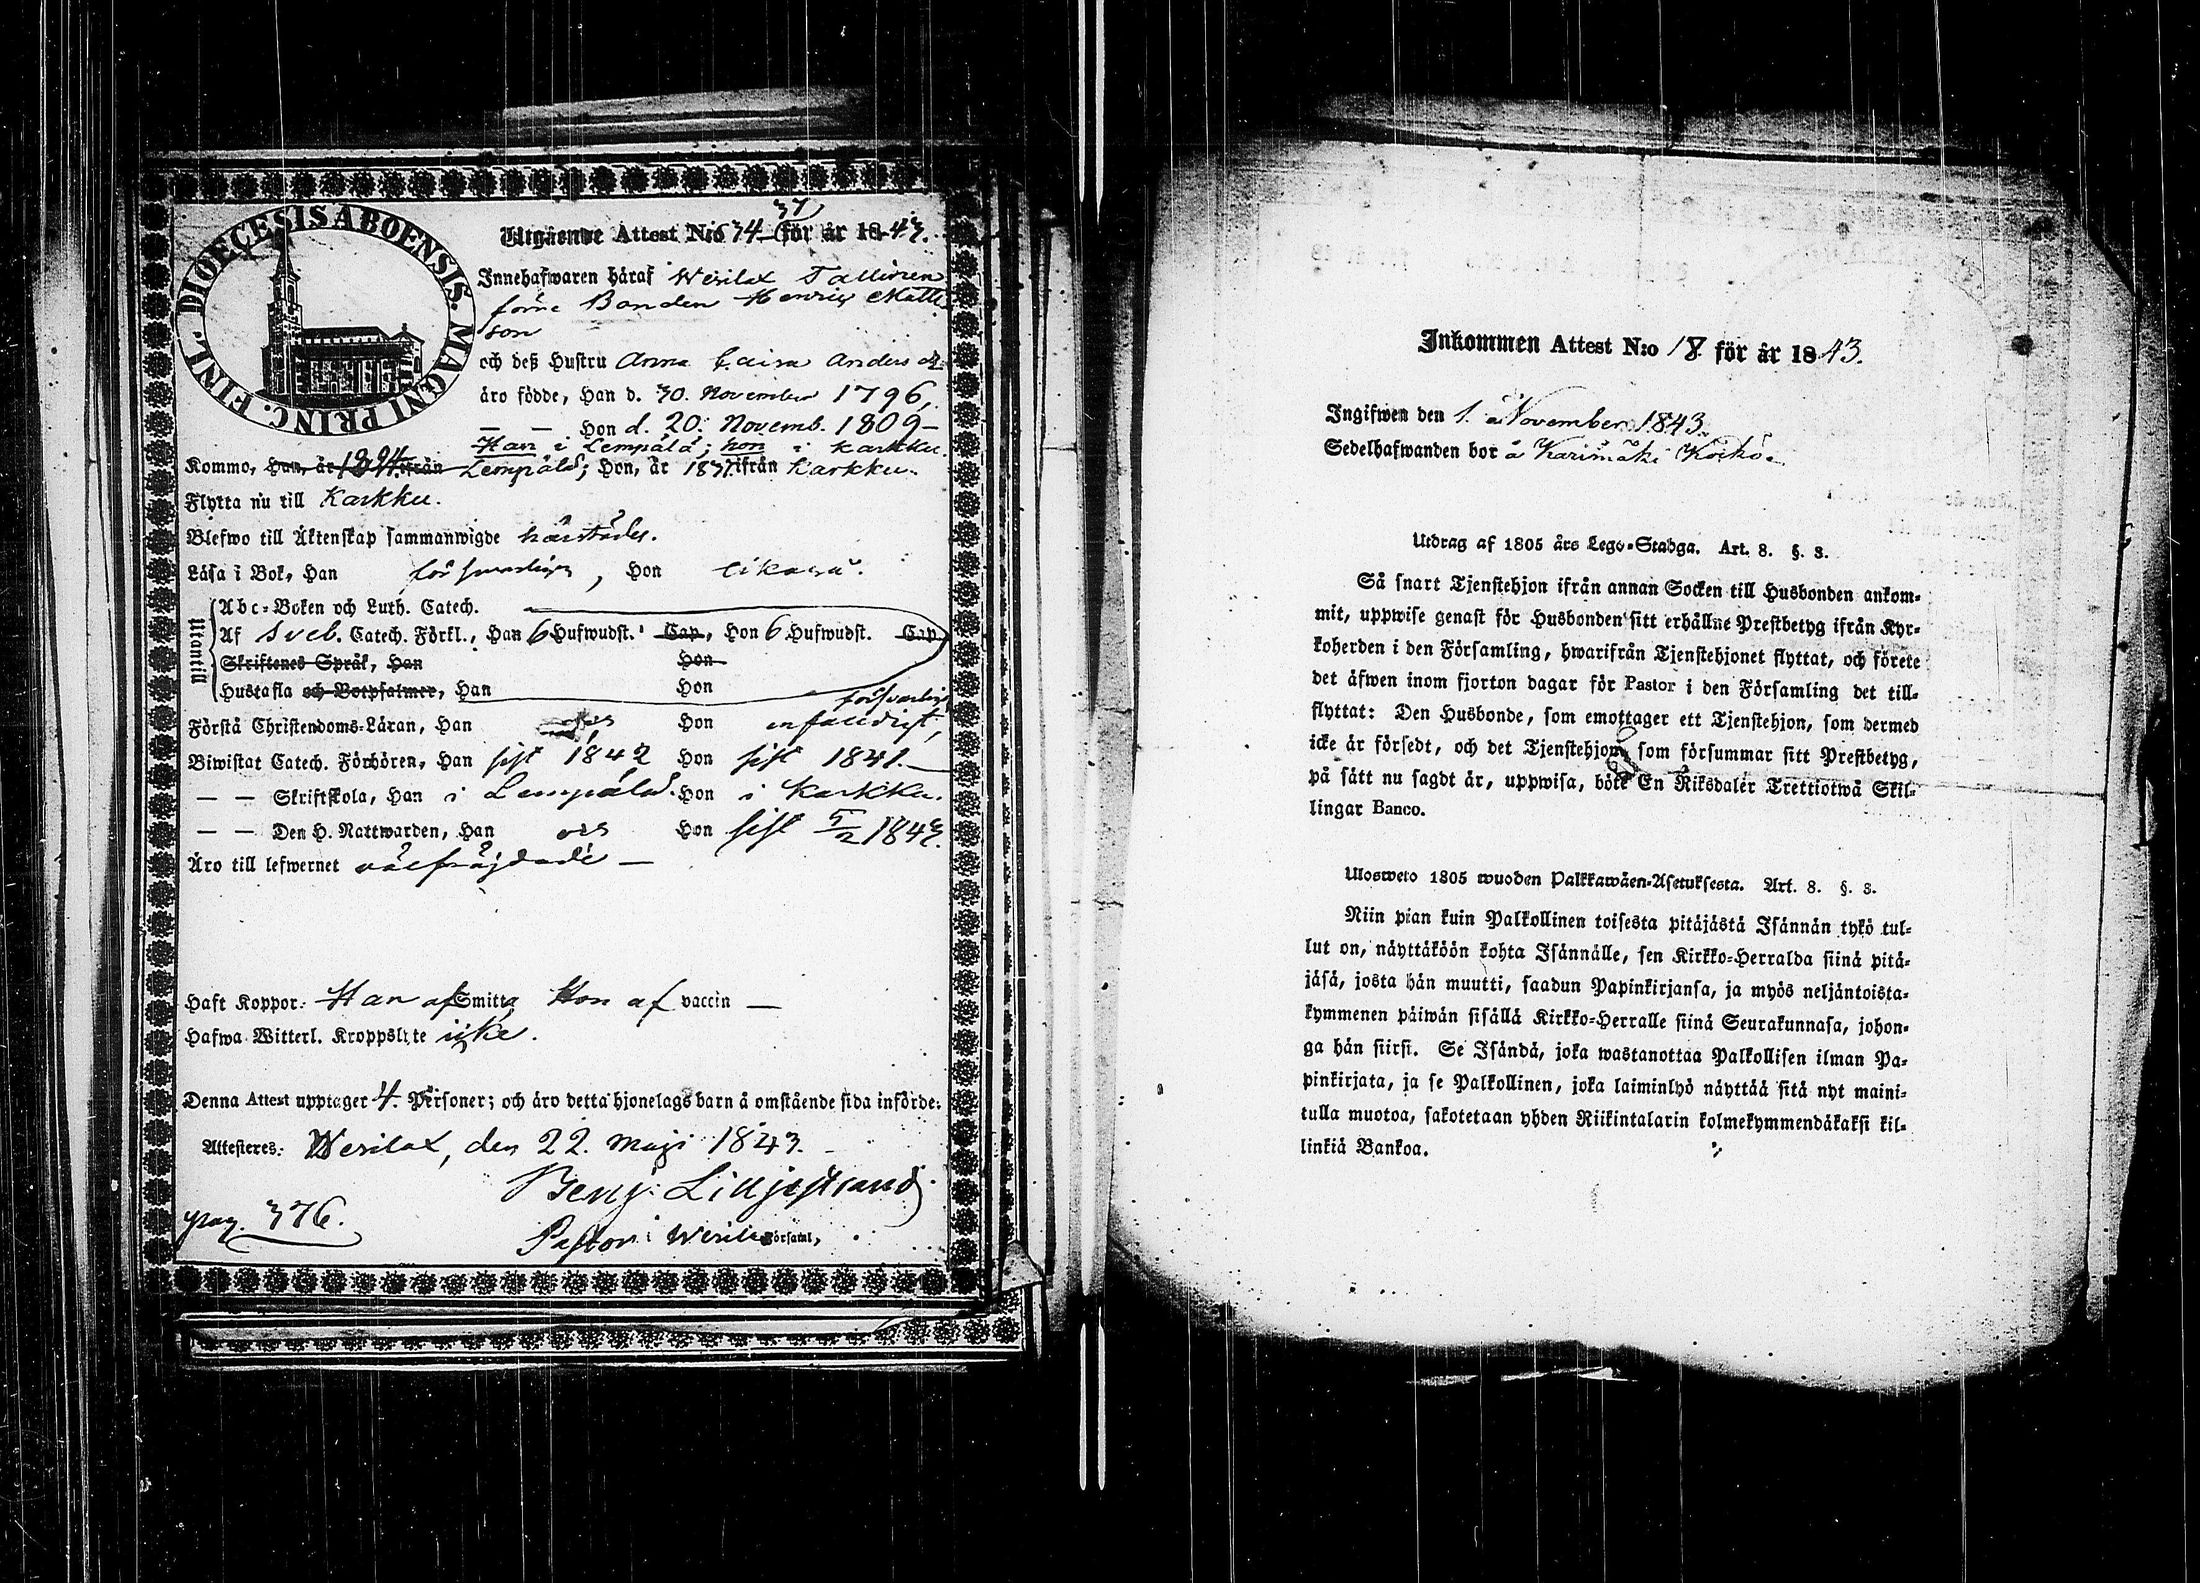 DIOECESIS ABOENSIS. MAGNI PRINC. FINL.
37
Utgående Attest N:o 34 för år 1843.
Innehafwaren häraf Wesilax Tallinen
förre Bonden Henric Matts
son
och deß Hustru Anna Caisa Anders dr
äro födde, Han d. 30. November 1796,
— — Hon d. 20. Novemb. 1809—
Han i Lempälä; hon i Karkku.
Kommo, Han, år ifrån Lempälä; Hon, år 1837 ifrån Karkku.
Flytta nu till Karkku.
Blefwo till Äktenskap sammanwigde härstädes.
Läsa i Bok, Han försvarligen, Hon likaså.
Utantill
Abc-Boken och Luth. Catech.
Af Sveb. Catech. Förkl., Han 6 Hufwudst. Cap, Hon 6 Hufwudst. Cap
Skriftenes Språk, Han Hon
Hustafla och Botpsalmer, Han Hon
försvarligt
Förstå Christendoms-Läran, Han Hon enfaldigt,
Biwistat Catech. Förhören, Han sist 1842 Hon sist 1841.—
— — Skriftskola, Han i Lempälä. Hon i Karkku.
— — Den H. Nattwarden, Han Hon sist 5/2 1843.
Äro till lefwernet välfräjdade —
Haft Koppor: Han af Smitta, Hon af vaccin —
Hafwa Witterl. Kroppslyte icke.
Denna Attest upptager 4. Personer; och äro detta hjonelags barn å omstående sida införde:
Attesteres: Wesilax, den 22. Maji 1843.
Benj: Lilljestrand.
pag. 376.
Pastor i Wesilax Församl,
Inkommen Attest N:o 18 för år 1843.
Ingifwen den 1. November 1843.
Sedelhafwanden bor å Karimäki
Utdrag af 1805 års Lego-Stadga. Art. 8. §. 8.
Så snart Tjenstehjon ifrån annan Socken till Husbonden ankom-
mit, uppwise genast för Husbonden sitt erhållne Prestbetyg ifrån Kyr-
koherden i den Församling, hwarifrån Tjenstehjonet flyttat, och förete
det äfwen inom fjorton dagar för Pastor i den Församling det till-
flyttat: Den Husbonde, som emottager ett Tjenstehjon, som dermed
icke är försedt, och det Tjenstehjon, som försummar sitt Prestbetyg,
på sätt nu sagdt är, uppwisa, böte En Riksdaler Trettiotwå Skil-
lingar Banco.
Ulosweto 1805 wuoden Palkkawäen-Asetuksesta. Art. 8. §. 8.
Niin pian kuin Palkollinen toisesta pitäjästä Isännän tykö tul-
lut on, näyttäköön kohta Isännälle, sen Kirkko-Herralda siinä pitä-
jäsä, josta hän muutti, saadun Papinkirjansa, ja myös neljäntoista-
kymmenen päiwän sisällä Kirkko-Herralle siinä Seurakunnasa, johon-
ga hän siirsi. Se Isändä, joka wastanottaa Palkollisen ilman Pa-
pinkirjata, ja se Palkollinen, joka laiminlyö näyttää sitä nyt maini-
tulla muotoa, sakotetaan yhden Riikintalarin kolmekymmendäkaksi kil-
linkiä Bankoa.